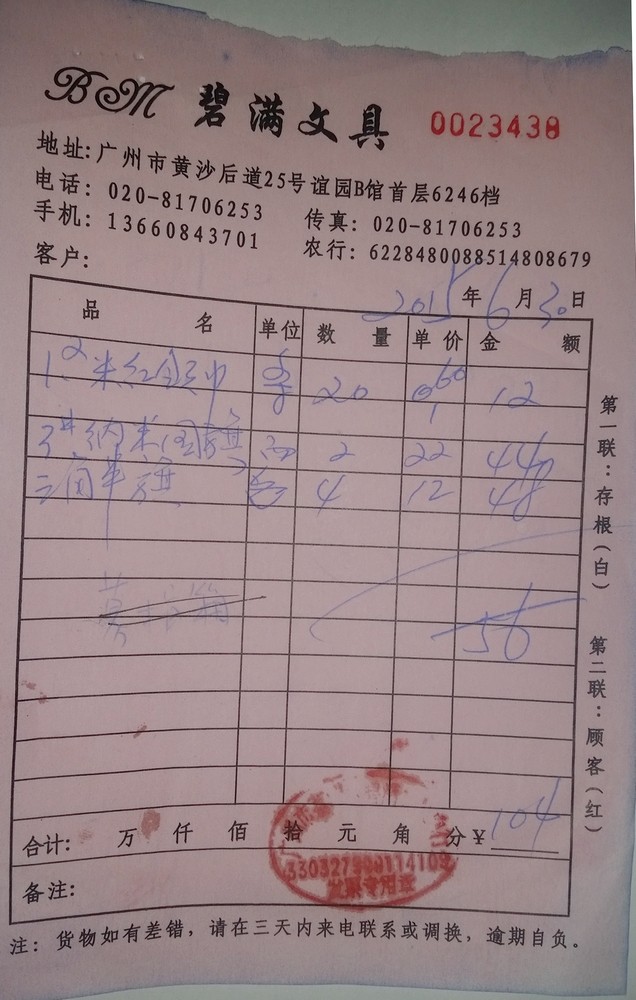 BM 碧满文具 0023438
地址:广州市黄沙后道25号谊园B馆首层6246档
电话: 020-81706253 传真: 020-81706253
手机: 13660843701 农行: 6228480088514808679
客户:
2015年6月30日
品名 单位 数量 单价 金额
1.2米红领巾 条 20 0.60 12
纳米国旗 面 2 22 44
三角串旗 4 12 48
56
合计: 万 仟 佰 拾 元 角 分 ¥ 104
备注:
注: 货物如有差错，请在三天内来电联系或调换，逾期自负。
第一联:存根(白)
第二联:顾客(红)
发票专用章